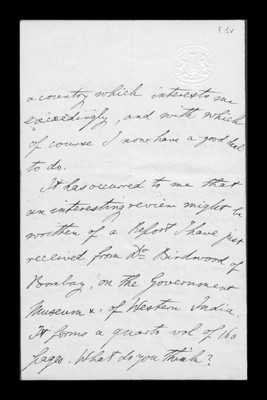 a country which interests me
exceedingly, and with which
of course I now have a good deal
to do.
It has occurred to me that
an interesting review might be
written of a Report I have just
received from Dr Birdwood of
Bombay, on the Government
Museum &, of Western India.
It forms a quarto vol of 160
pages. What do you think?